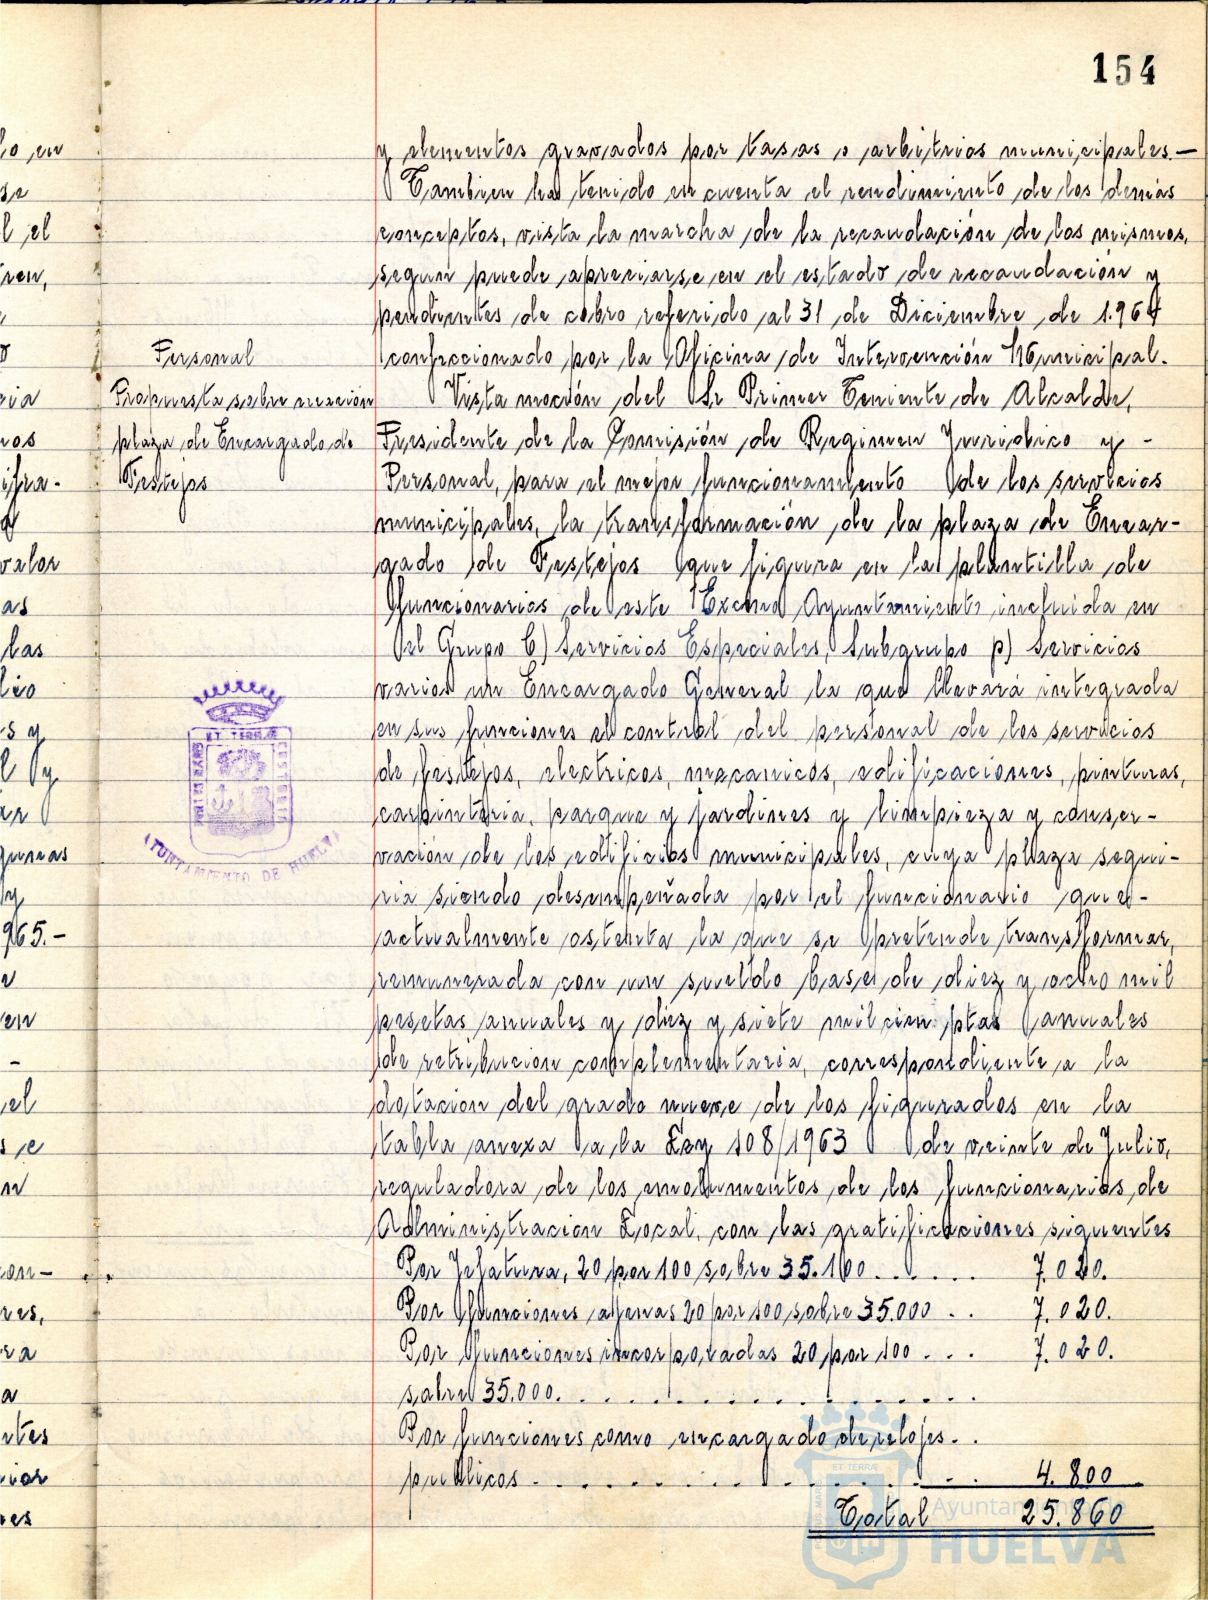 154
y elementos gravados por tasas o arbitrios municipales.—
Tambien ha tenido en cuenta el rendimiento de los demás
conceptos, vista la marcha de la recaudación de los mismos,
segun puede apreciarse en el estado de recaudación y
pendientes de cobro referido al 31 de Diciembre de 1.964
confeccionado por la Oficina de Intervención Municipal.
Personal
Propuesta sobre creación
plaza de Encargado de
Festejos
Vista moción del Sr Primer Teniente de Alcalde,
Presidente de la Comisión de Regimen Juridico y -
Personal, para el mejor funcionamiento de los servicios
municipales, la transformación de la plaza de Encar-
gado de Festejos que figura en la plantilla de
funcionarios de este Excmo Ayuntamiento incluida en
el Grupo C) Servicios Especiales, Subgrupo p) Servicios
varios un Encargado General la que llevará integrada
en sus funciones el control del personal de los servicios
de festejos, electricos, mecanicos, edificaciones, pinturas,
carpinteria, parque y jardines y limpieza y conser-
vación de los edificios municipales, cuya plaza segui-
ria siendo desempeñada por el funcionario que-
actualmente ostenta la que se pretende transformar,
remunerada con un sueldo base de diez y ocho mil
pesetas anuales y diez y siete mil cien ptas anuales
de retribucion complementaria, correspondiente a la
dotacion del grado nueve de los figurados en la
tabla anexa a la Ley 108/1963 de veinte de Julio,
reguladora de los emolumentos de los funcionarios de
Administracion Local, con las gratificaciones siguentes
Por Jefatura, 20 por 100 sobre 35.100...... 7.020.
Por funciones ajenas 20 por 100 sobre 35.000 .. 7.020.
Por funciones incorporadas 20 por 100 ... 7.020.
sobre 35.000....................
Por funciones como encargado de relojes..
publicos .................... 4.800
Total 25.860
ET TERRÆ
AYUNTAMIENTO DE HUELVA
lo en
se
l el
ren,
valor
as
las
s y
l y
gunas
y
965.-
en
-
el
s e
n
con-
res,
ra
a
ntes
ET TERRÆ
Ayuntamiento de
HUELVA